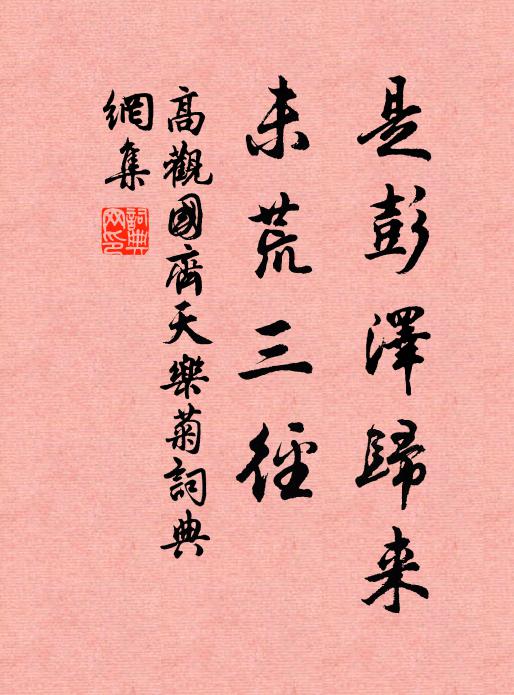 是彭澤歸来
未荒三徑
高觀國齊天樂菊詞典
網集
詞典网印